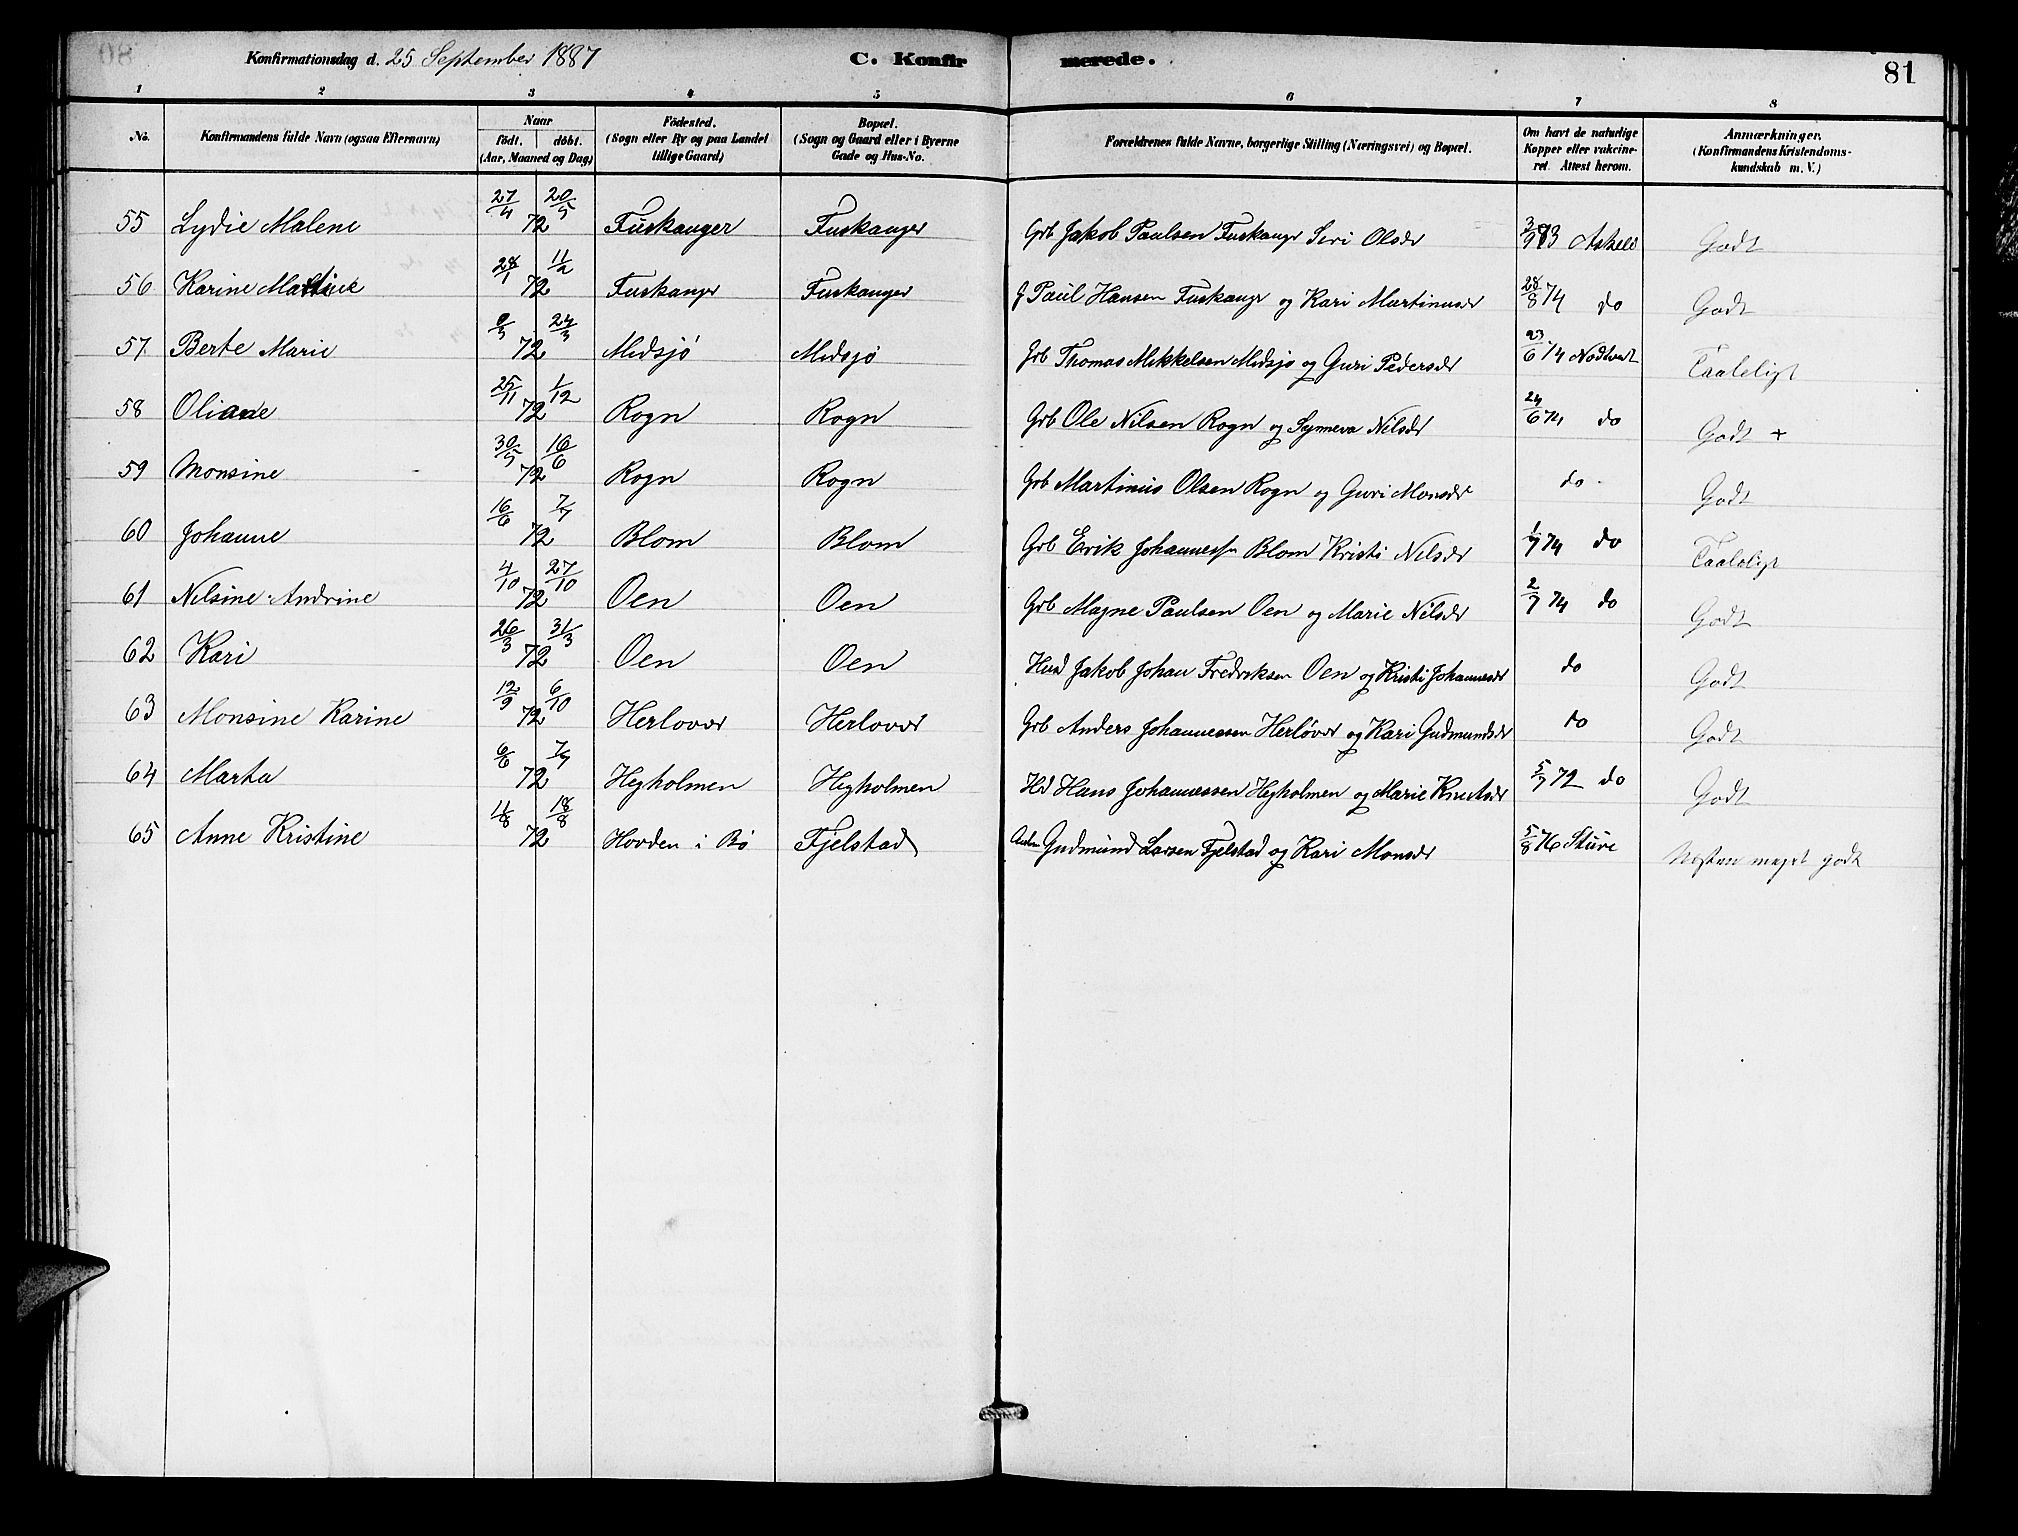 Konfirmationsdag d. 25 September 1887 C. Konfirmerede. 81
1 2 3 4 5 6 7 8
No. Konfirmandens fulde Navn (ogsaa Efternavn) Naar födt. döbt. (Aar, Maaned og Dag) Födested. (Sogn eller By og paa Landet tillige Gaard) Bopæl. (Sogn og Gaard eller i Byerne Gade og Hus-No. Forældrenes fulde Navne, borgerlige Stilling (Næringsvei) og Bopæl. Om havt de naturlige Kopper eller vakcineret. Attest herom. Anmærkninger. (Konfirmandens Kristendomskundskab m. V.)
55 Lydie Malene 27/4 20/5 72 Fuskanger Fuskanger Grb Jakob Paulsen Fuskangr Siri Olsdr 3/9 73 Askeló Godt
56 Karine Martine 28/1 11/2 72 Fuskangr Fuskanger G Paul Hansen Fuskangr og Kari Martinusdr 28/8 74 do Godt
57 Berte Marie 9/3 24/3 72 Midsjö Midsjø Grb Thomas Mikkelsen Midsjø og Guri Pedersdr 23/6 74 Nodtvedt Taaleligt
58 Oliane 25/11 1/12 72 Rogn Rogn Grb Ole Nilsen Rogn og Synneva Nilsdr 24/6 74 do Godt +
59 Monsine 30/5 16/6 72 Rogn Rogn Grb Martinus Olsen Rogn og Guri Monsdr do Godt
60 Johanne 16/6 7/7 72 Blom Blom Grb Erik Johannessn Blom Kristi Nilsdr 1/7 74 do Taaleligt
61 Nilsine Andrine 4/10 27/10 72 Oen Oen Grb Magne Paulsen Oen og Marie Nilsdr 2/7 74 do Godt
62 Kari 26/3 31/3 72 Oen Oen Husd Jakob Johan Fredriksen Oen og Kristi Johannesdr do Godt
63 Monsine Karine 12/9 6/10 72 Herlover Herlover Grb Anders Johannessen Herløver og Kari Gudmundsdr do Godt
64 Marta 6/6 7/7 72 Hegholmen Hegholmen Hd Hans Johannessen Hegholmen og Marie Knutsdr 5/7 72 do Godt
65 Anne Kristine 11/8 18/8 72 Hovden i Bö Fjelstad Gudmund Larsen Fjelstad og Kari Monsdr 5/8 76 Sture Næsten meget godt